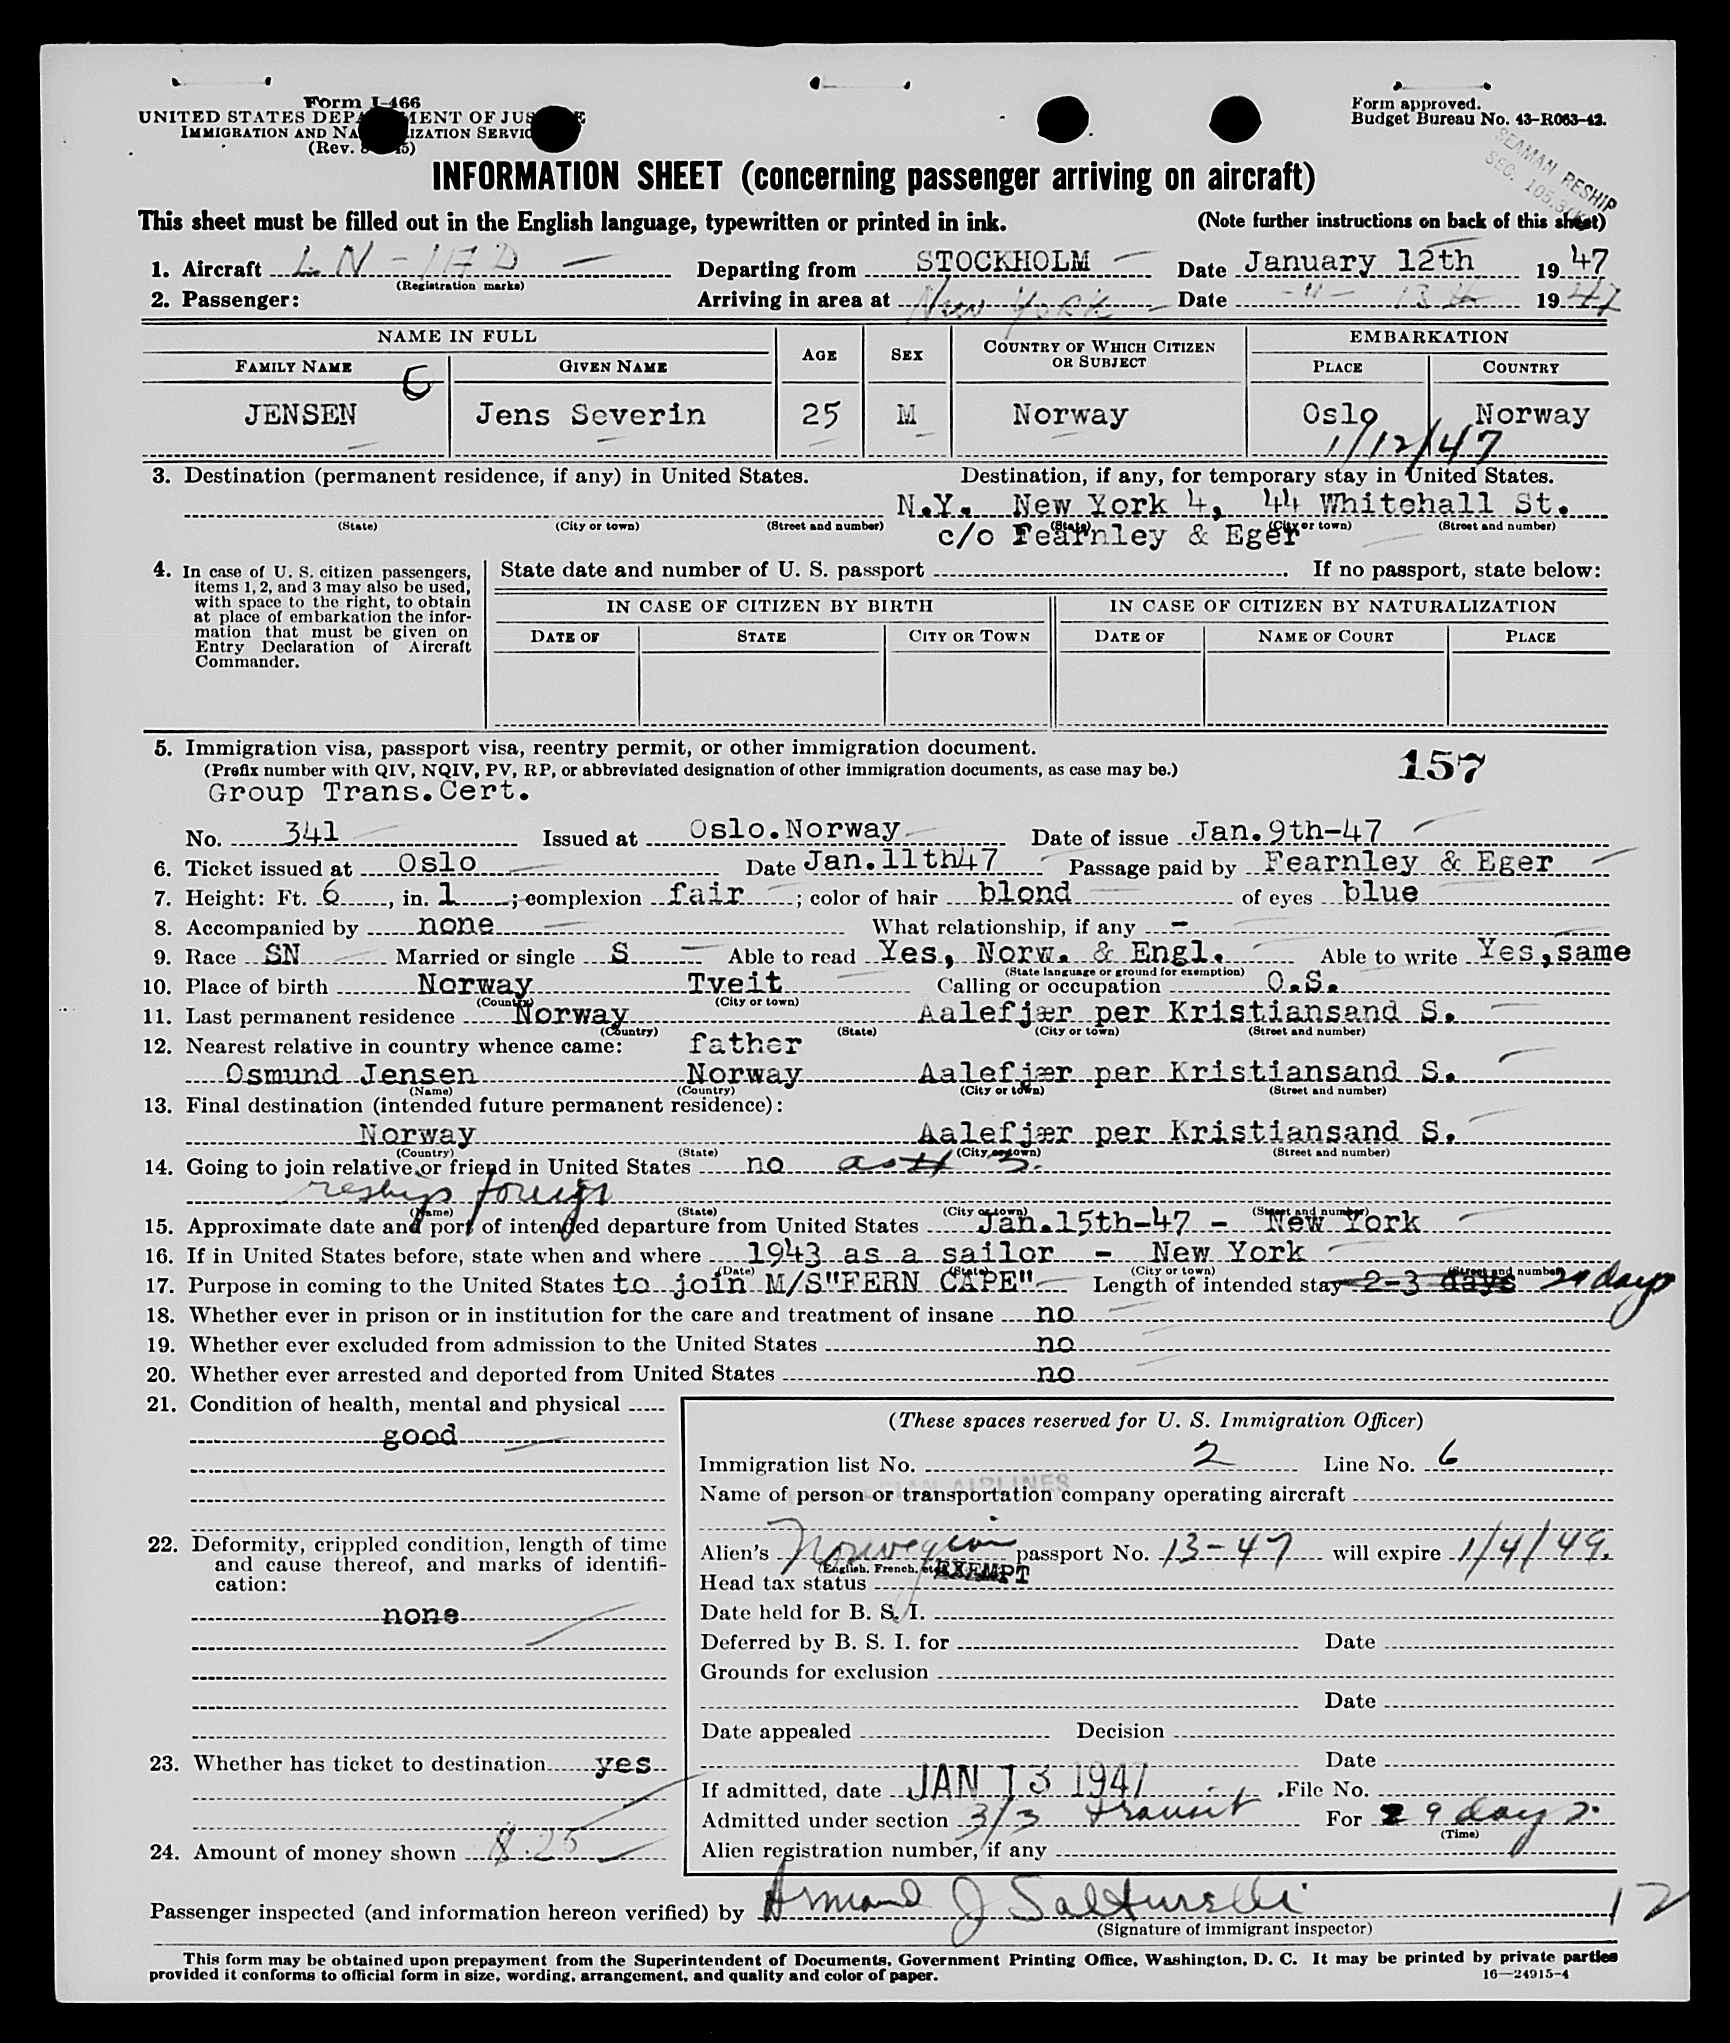 Form I-466
UNITED STATES DEPARTMENT OF JUSTICE
IMMIGRATION AND NATURALIZATION SERVICE
(Rev.
Form approved.
Budget Bureau No. 43-R063-42.
SEAMAN RESHIP
SEC. 105.3
INFORMATION SHEET (concerning passenger arriving on aircraft)
This sheet must be filled out in the English language, typewritten or printed in ink. (Note further instructions on back of this sheet)
1. Aircraft LN-IAD Departing from STOCKHOLM Date January 12th 1947
(Registration marks)
2. Passenger: Arriving in area at New York Date -"- 13th 1947
NAME IN FULL AGE SEX COUNTRY OF WHICH CITIZEN OR SUBJECT EMBARKATION
FAMILY NAME GIVEN NAME PLACE COUNTRY
6
JENSEN Jens Severin 25 M Norway Oslo Norway
1/12/47
3. Destination (permanent residence, if any) in United States. Destination, if any, for temporary stay in United States.
N.Y. New York 4, 44 Whitehall St.
(State) (City or town) (Street and number) (State) (City or town) (Street and number)
c/o Fearnley & Eger
4. In case of U. S. citizen passengers, items 1, 2, and 3 may also be used, with space to the right, to obtain at place of embarkation the information that must be given on Entry Declaration of Aircraft Commander.
State date and number of U. S. passport If no passport, state below:
IN CASE OF CITIZEN BY BIRTH IN CASE OF CITIZEN BY NATURALIZATION
DATE OF STATE CITY OR TOWN DATE OF NAME OF COURT PLACE
5. Immigration visa, passport visa, reentry permit, or other immigration document.
(Prefix number with QIV, NQIV, PV, RP, or abbreviated designation of other immigration documents, as case may be.)
157
Group Trans.Cert.
No. 341 Issued at Oslo.Norway Date of issue Jan.9th-47
6. Ticket issued at Oslo Date Jan.11th47 Passage paid by Fearnley & Eger
7. Height: Ft. 6, in. 1; complexion fair; color of hair blond of eyes blue
8. Accompanied by none What relationship, if any -
9. Race SN Married or single S Able to read Yes, Norw. & Engl. Able to write Yes,same
(State language or ground for exemption)
10. Place of birth Norway Tveit Calling or occupation O.S.
(Country) (City or town)
11. Last permanent residence Norway Aalefjær per Kristiansand S.
(Country) (State) (City or town) (Street and number)
12. Nearest relative in country whence came: father
Osmund Jensen Norway Aalefjær per Kristiansand S.
(Name) (Country) (City or town) (Street and number)
13. Final destination (intended future permanent residence):
Norway Aalefjær per Kristiansand S.
(Country) (State) (City or town) (Street and number)
14. Going to join relative or friend in United States no as # 3.
reship foreign
(Name) (State) (City or town) (Street and number)
15. Approximate date and port of intended departure from United States Jan.15th-47 - New York
16. If in United States before, state when and where 1943 as a sailor - New York
(Date) (State) (City or town) (Street and number)
17. Purpose in coming to the United States to join M/S"FERN CAPE" Length of intended stay 2-3 days 29 days
18. Whether ever in prison or in institution for the care and treatment of insane no
19. Whether ever excluded from admission to the United States no
20. Whether ever arrested and deported from United States no
21. Condition of health, mental and physical
good
22. Deformity, crippled condition, length of time and cause thereof, and marks of identification:
none
23. Whether has ticket to destination yes
24. Amount of money shown $.25
(These spaces reserved for U. S. Immigration Officer)
Immigration list No. 2 Line No. 6
AIRLINES
Name of person or transportation company operating aircraft
Alien's Norwegian passport No. 13-47 will expire 1/4/49.
(English, French, etc.)
Head tax status EXEMPT
Date held for B. S. I.
Deferred by B. S. I. for Date
Grounds for exclusion
Date
Date appealed Decision
Date
If admitted, date JAN 13 1947 File No.
Admitted under section 3/3 transit For 29 days.
(Time)
Alien registration number, if any
Passenger inspected (and information hereon verified) by Armand J Salturelli 12
(Signature of immigrant inspector)
This form may be obtained upon prepayment from the Superintendent of Documents, Government Printing Office, Washington, D. C. It may be printed by private parties
provided it conforms to official form in size, wording, arrangement, and quality and color of paper.
16—24915-4